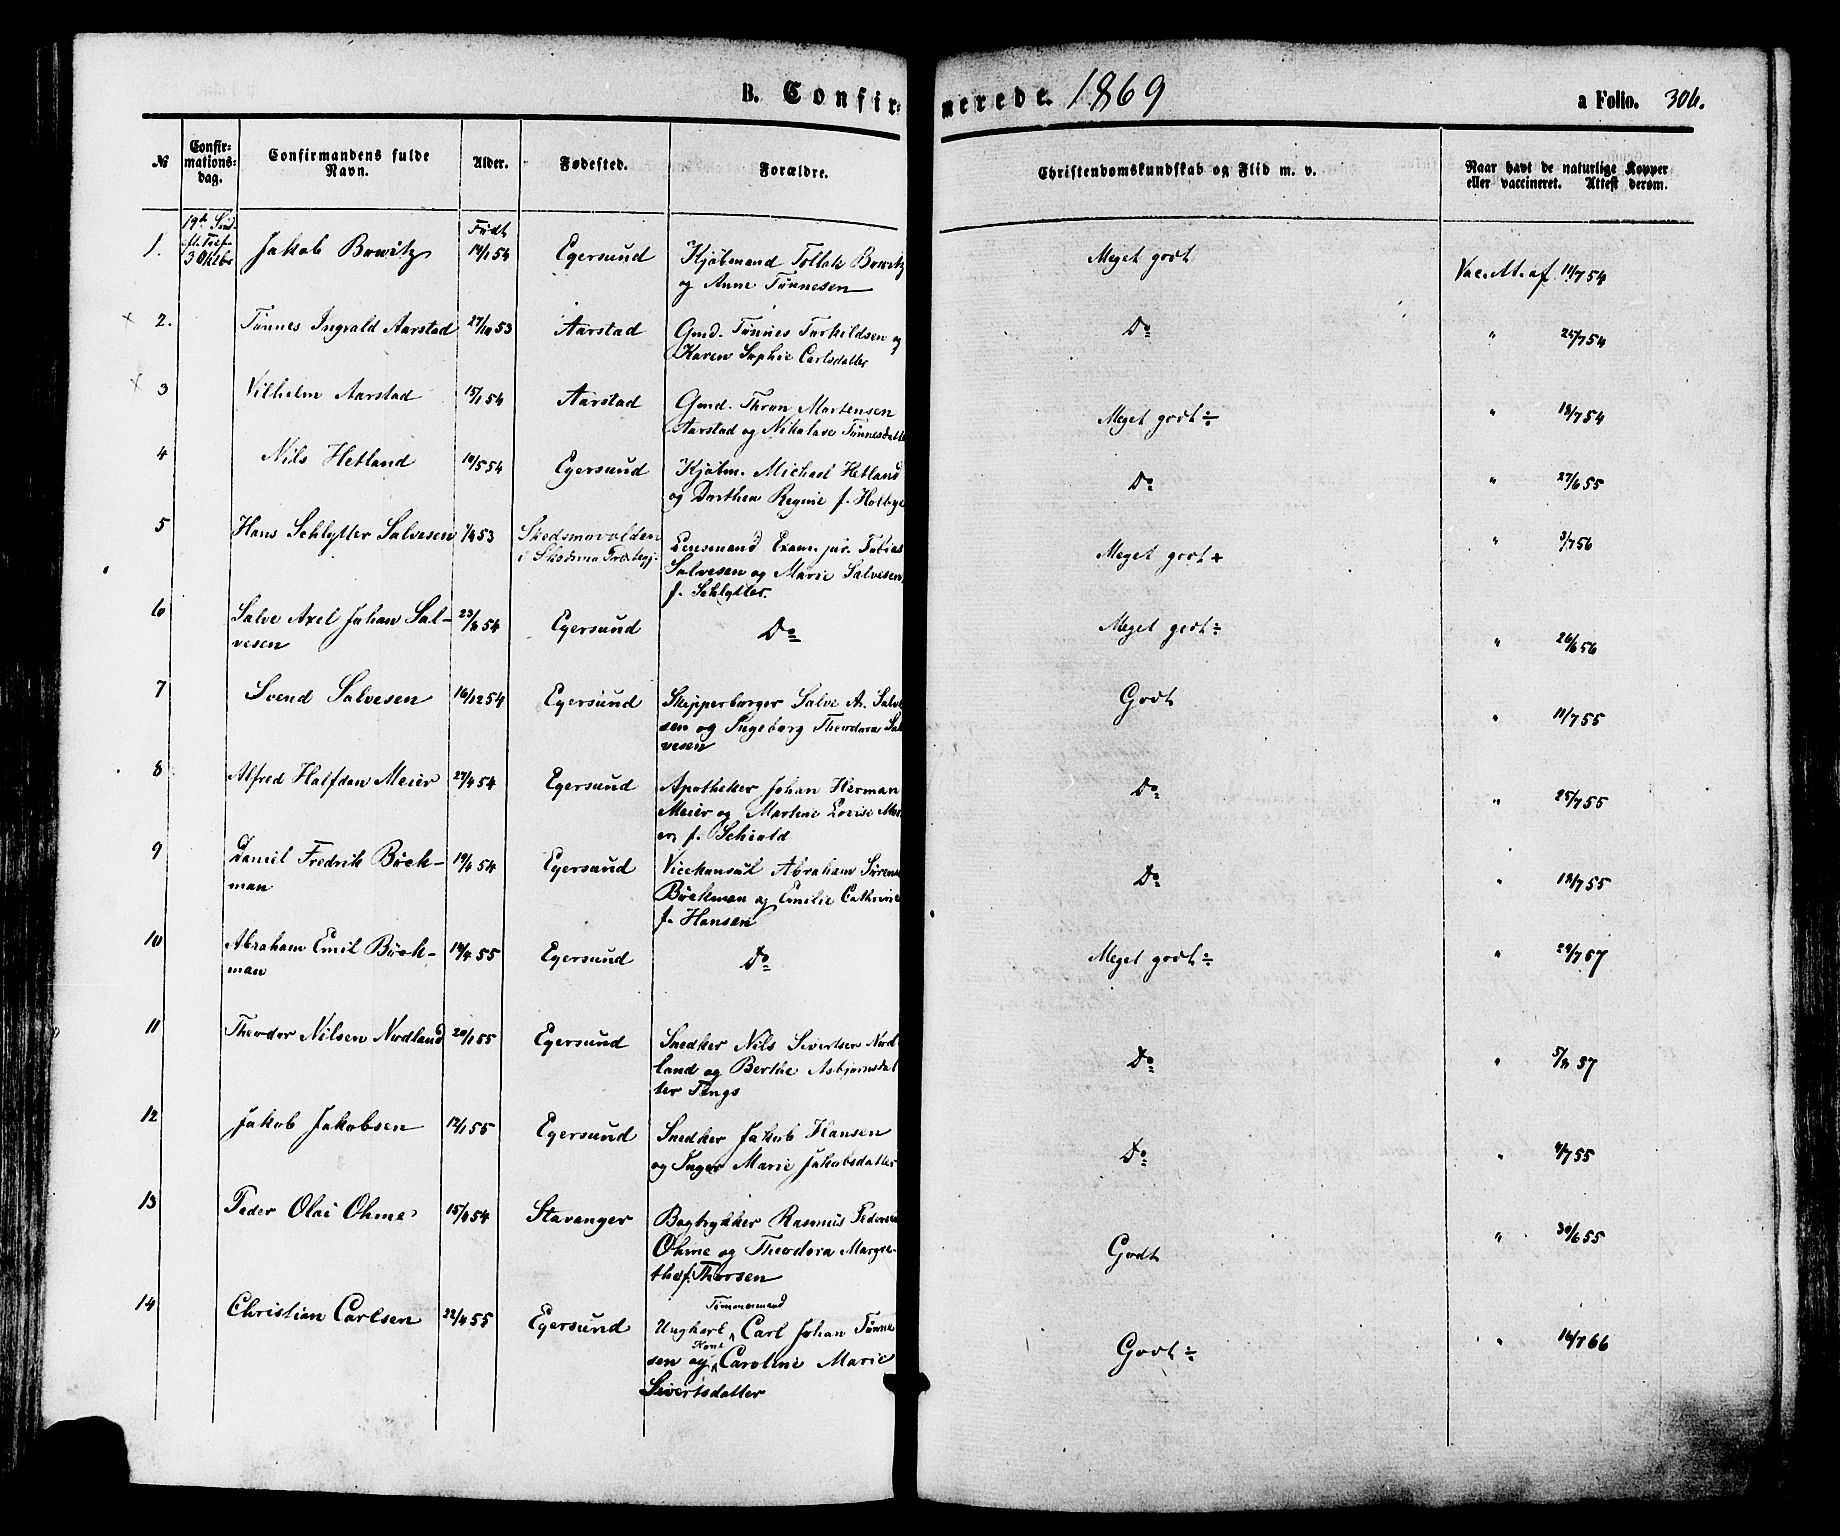 B. Confir= merede. 1869 a Folio. 306.
№ Confir-mations-dag. Confirmandens fulde Navn. Alder. Fødested. Forældre. Christendomskundskab og Flid m. v. Naar havt de naturlige Kopper eller vaccineret. Attest derom.
1. 3 Oktbr Jakob Bowitz Født 14/1 54 Egersund Kjøbmand Tollak Bowitz Meget godt Vac. At. af 11/7 54
og Anne Tønnesen
2. Tønnes Ingvald Aarstad 27/10 53 Aarstad Gmd. Tønnes Torkildsen og Do 25/7 54
Karen Sophie Carlsdatter
3 Vilhelm Aarstad 15/1 54 Aarstad Gmd. Thron Mortensen Meget godt ÷ " 18/7 54
Aarstad og Nikolave Tønnesdatter
4 Nils Hetland 10/5 54 Egersund Kjøbm. Michael Hetland Do " 27/6 55
og Dorthea Regine f. Holbye
5 Hans Schlytter Salvesen 53 Skedsmovolden Lensmand Exam. jur. Tobias Meget godt + " 3/7 56
i Skedsmo Præstegj. Salvesen og Marie Salvesen
f. Schlytter.
6 Salve Axel Johan Sal- 23/8 54 Egersund Do Meget godt ÷ " 26/6 56
vesen
7 Svend Salvesen 16/12 54 Egersund Skipperborger Salve A. Salve Godt " 11/7 55
sen og Ingeborg Theodora Sal
vesen
8 Alfred Halfdan Meier 27/4 54 Egersund Apotheker Johan Herman Do " 25/7 55
Meier og Martine Lovise Mei
er, f. Schiold
9 Daniel Fredrik Böck- 19/1 54 Egersund Vicekonsul Abraham Sørens Do " 18/7 55
man Böckman og Emilie Cathrine
f. Hansen
10 Abraham Emil Böck- 14/4 55 Egersund Do Meget godt ÷ " 29/7 57
man
11 Theodor Nilsen Nordland 20/1 55 Egersund Snedker Nils Sivertsen Nord Do " 5/8 57
land og Berthe Asbjørnsdat
ter Tengs
12 Jakob Jakobsen 12/1 55 Egersund Snedker Jakob Hansen Do " 4/7 55
og Inger Marie Jakobsdatter
13 Peder Olai Ohme 15/8 54 Stavanger Bogtrykker Rasmus Pedersen Godt " 30/6 55
Ohme og Theodora Margre-
tha f. Thorsen
14 Christian Carlsen 22/4 55 Egersund Ungkarl Tømmermand Carl Johan Tønne Godt ÷ " 16/7 66
sen og Kone Caroline Marie
Sivertsdatter